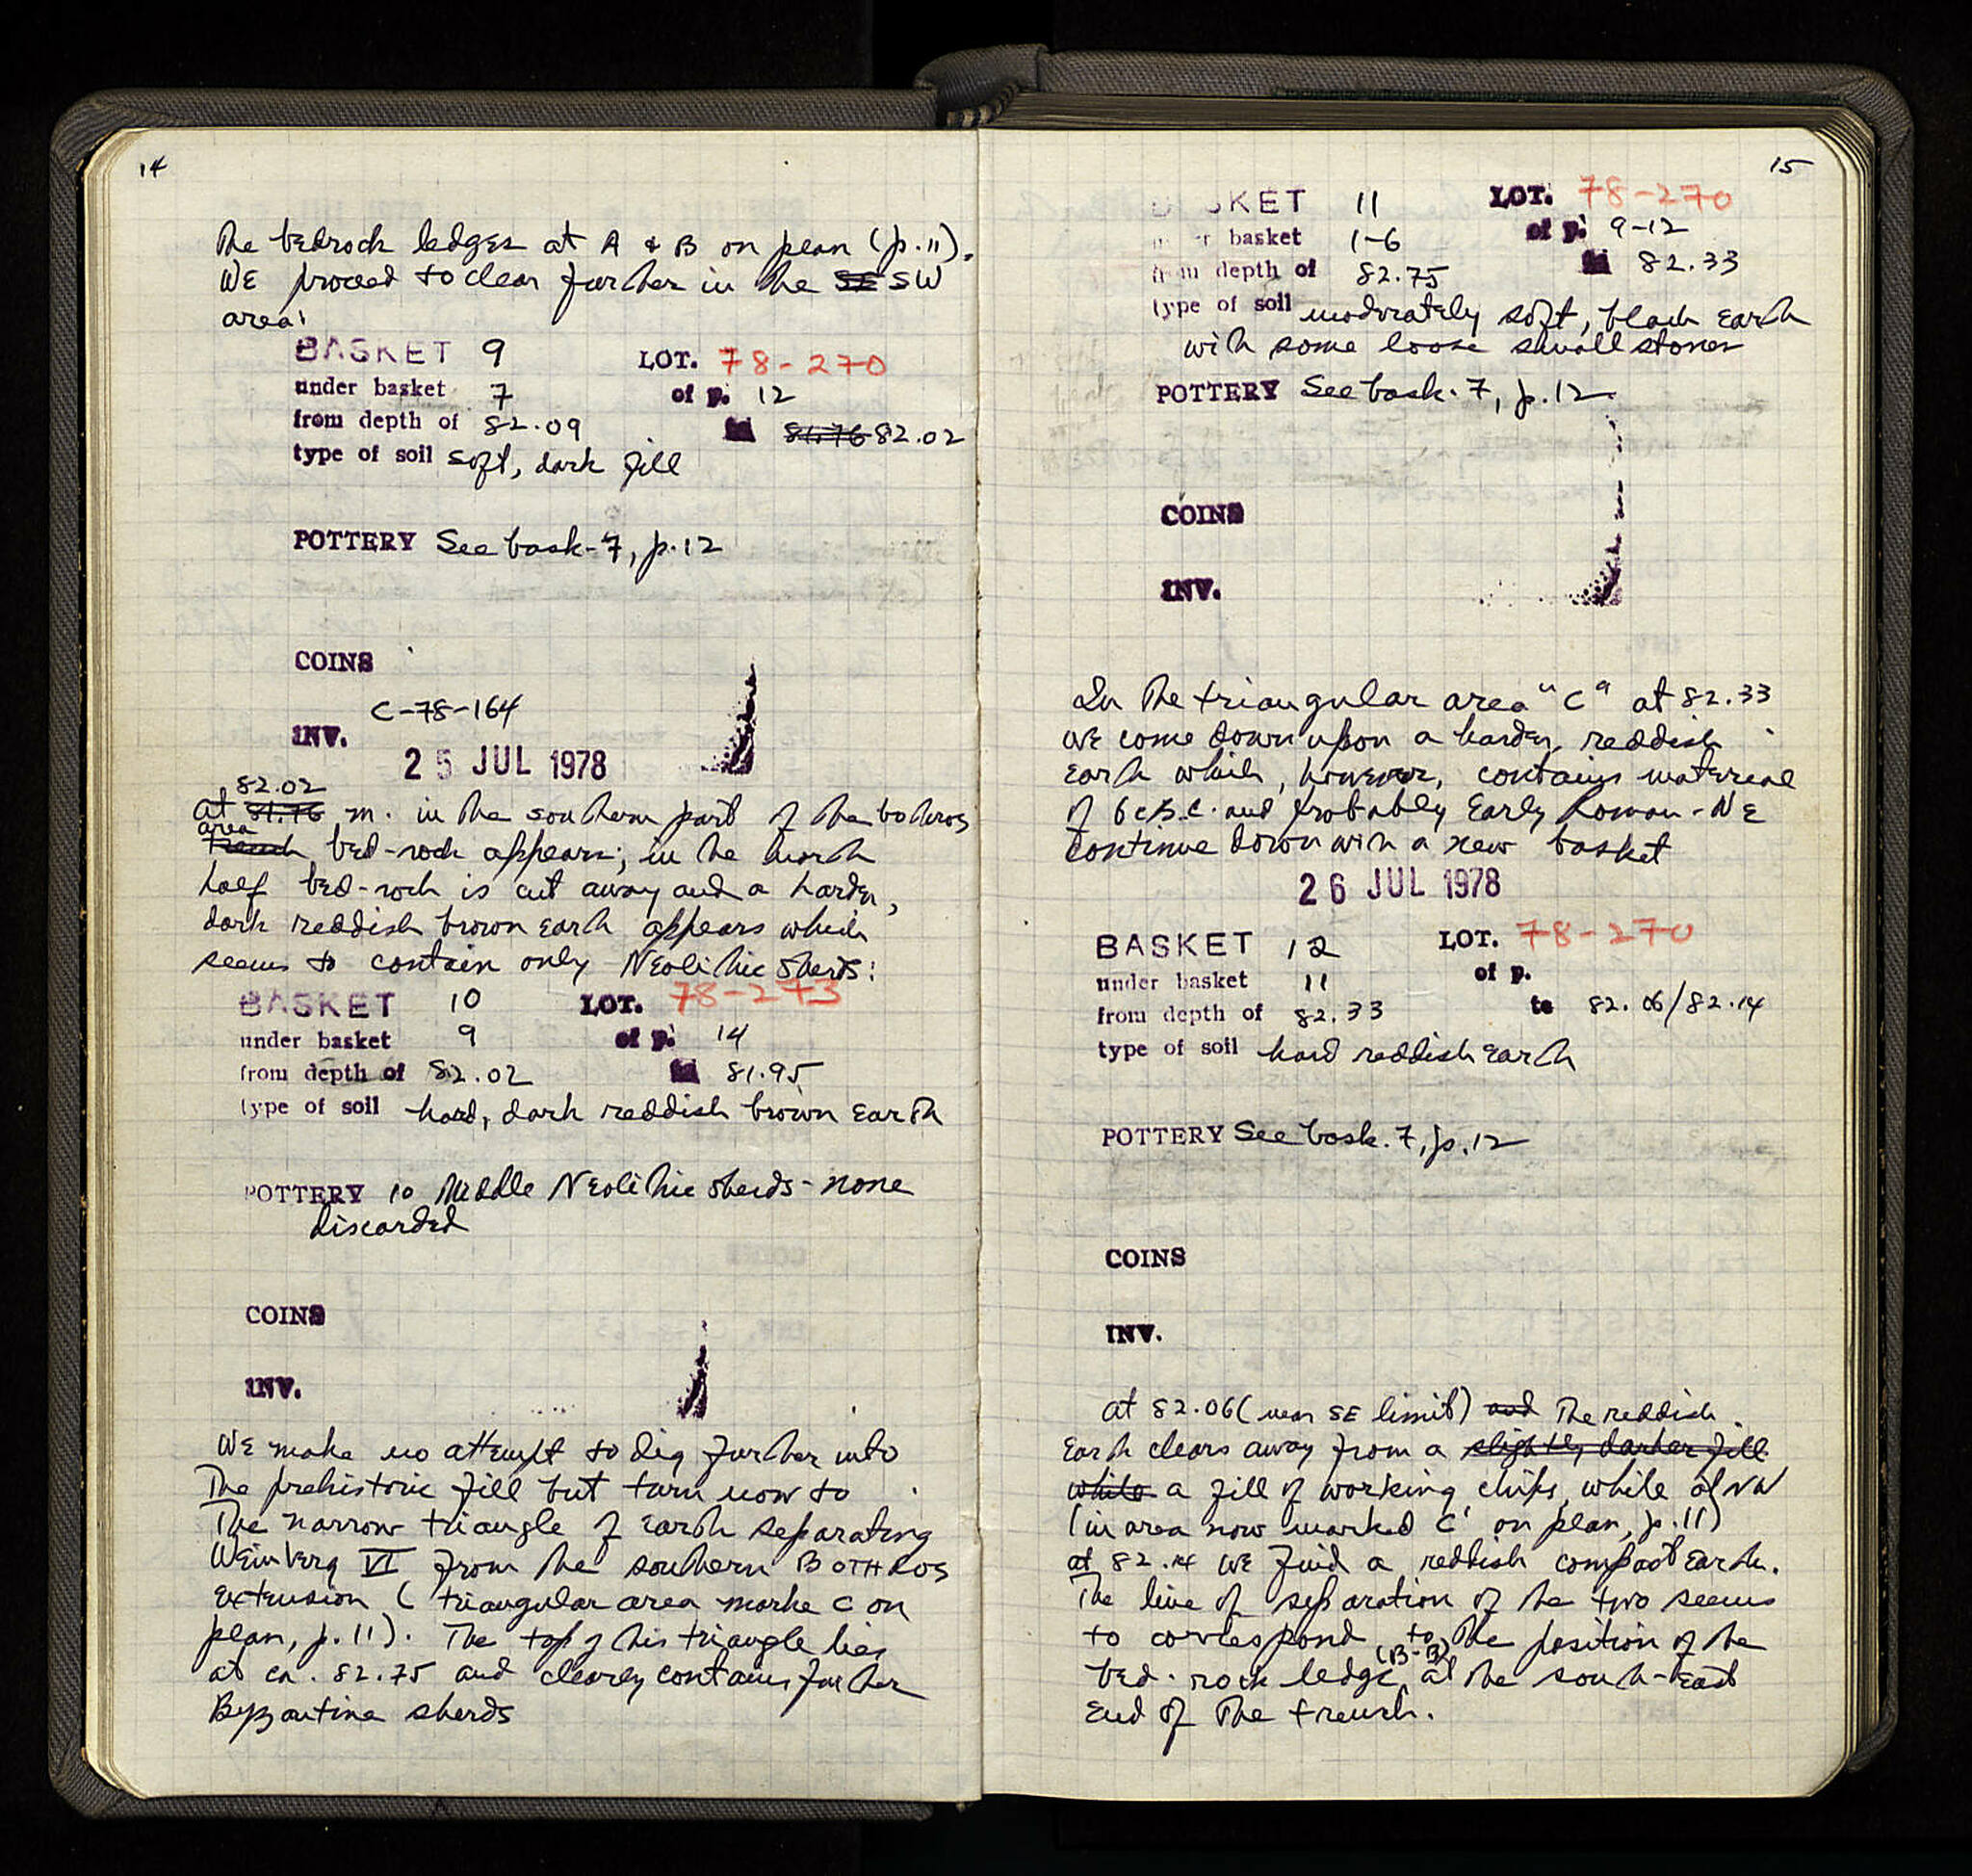 14
The bedrock ledges at A & B on plan (p. 11).
WE proceed to clear further in the SE SW
area:
BASKET 9 LOT. 78-270
under basket 7 of p. 12
from depth of 82.09 to 81.76 82.02
type of soil soft, dark fill
POTTERY See bask. 7, p. 12
COINS
C-78-164
INV.
25 JUL 1978
82.02
at 81.76 m. in the southern part of the bothros
area
trench bed-rock appears; in the north
half bed-rock is cut away and a harder,
dark reddish brown earth appears which
seems to contain only Neolithic sherds:
BASKET 10 LOT. 78-273
under basket 9 of p. 14
from depth of 82.02 to 81.95
type of soil hard, dark reddish brown earth
POTTERY 10 Middle Neolithic sherds - none
discarded
COINS
INV.
WE make no attempt to dig further into
The prehistoric fill but turn now to
The narrow triangle of earth separating
Weinberg VI from the southern BOTHROS
extension ( triangular area marke C on
plan, p. 11). The top of this triangle lies
at ca. 82.75 and clearly contains further
Byzantine sherds
15
BASKET 11 LOT. 78-270
under basket 1-6 of p. 9-12
from depth of 82.75 to 82.33
type of soil moderately soft, black earth
with some loose small stones
POTTERY See bask. 7, p. 12
COINS
INV.
In the triangular area "C" at 82.33
we come down upon a harder, reddish
earth which, however, contains material
of 6 c B.C. and probably Early Roman - WE
continue down with a new basket
26 JUL 1978
BASKET 12 LOT. 78-270
under basket 11 of p.
from depth of 82.33 to 82.06/82.14
type of soil hard reddish earth
POTTERY See bask. 7, p. 12
COINS
INV.
at 82.06 (near SE limit) and The reddish
earth clears away from a slightly darker fill
while a fill of working chips, while at NW
(in area now marked C' on plan, p. 11)
at 82.14 we find a reddish compact earth.
The line of separation of the two seems
to correspond to the position of the
(B-B)
bed-rock ledge, at the south-east
end of the trench.